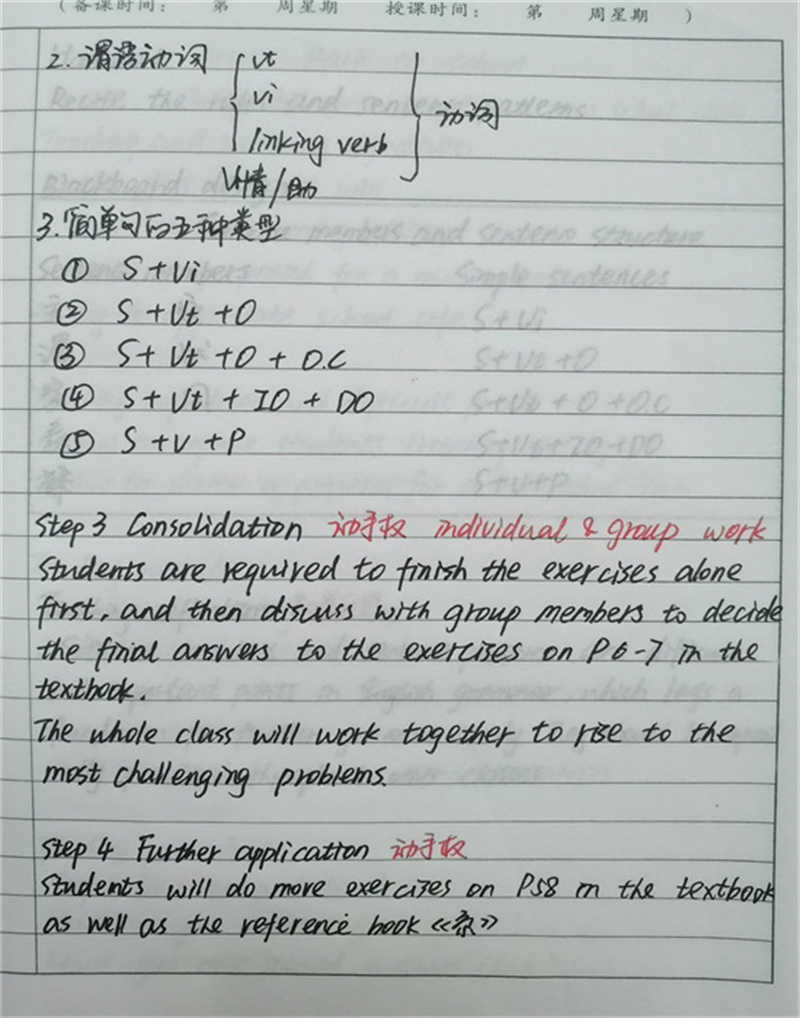 (备课时间： 第 周星期 授课时间： 第 周星期 )
2.谓语动词 { vt
vi
linking verb } 动词
V情/助
3.简单句的五种类型
① S+Vi
② S+Vt+O
③ S+Vt+O+O.C
④ S+Vt+IO+DO
⑤ S+V+P
Step 3 Consolidation 动手权 individual & group work
Students are required to finish the exercises alone
first, and then discuss with group members to decide
the final answers to the exercises on P6-7 in the
textbook.
The whole class will work together to rise to the
most challenging problems.
Step 4 Further application 动手权
Students will do more exercises on P58 in the textbook
as well as the reference book